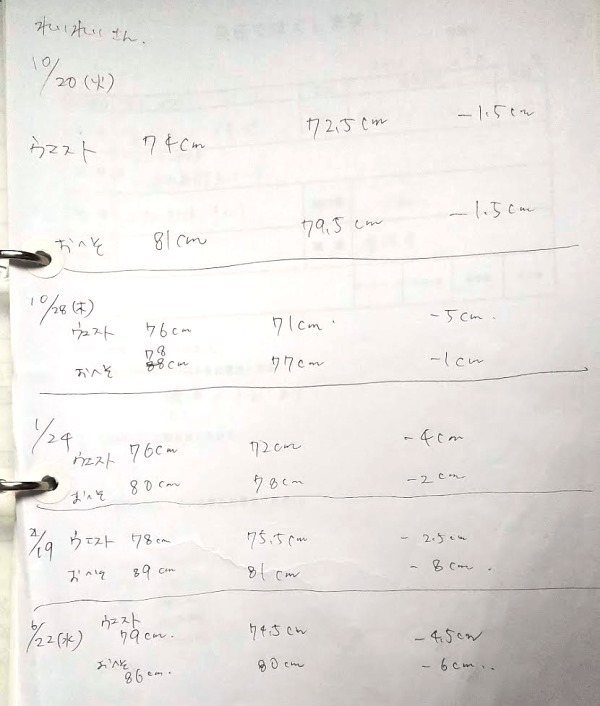 れいれいさん.
10/20(火)
ウエスト 74cm 72.5cm -1.5cm
おへそ 81cm 79.5cm -1.5cm
10/28(木)
ウエスト 76cm 71cm. -5cm.
78
おへそ 88cm 77cm -1cm
1/24
ウエスト 76cm 72cm -4cm
おへそ 80cm 78cm -2cm
2/19 ウエスト 78cm 75.5cm -2.5cm
おへそ 89cm 81cm -8cm.
6/22(水) ウエスト
79cm. 74.5cm -4.5cm
おへそ
86cm. 80cm -6cm..